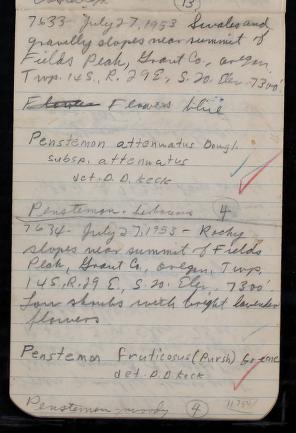 (13)
7633 - July 27, 1953 Swales and
gravelly slopes near summit of
Fields Peak, Grant Co., Oregon,
Twp. 14 S., R. 29 E., S. 20. Elev. 7300'
Flowers Flowers blue
Penstemon attenuatus Dougl.
subsp. attenuatus
det. D. D. Keck
Penstemon (4)
7634 - July 27, 1953 - Rocky
slopes near summit of Fields
Peak, Grant Co., Oregon, Twp.
14 S., R. 29 E., S. 20. Elev. 7300'
Low shrubs with bright lavender
flowers
Penstemon fruticosus (Pursh) Greene
det. D. D. Keck
Penstemon (4)